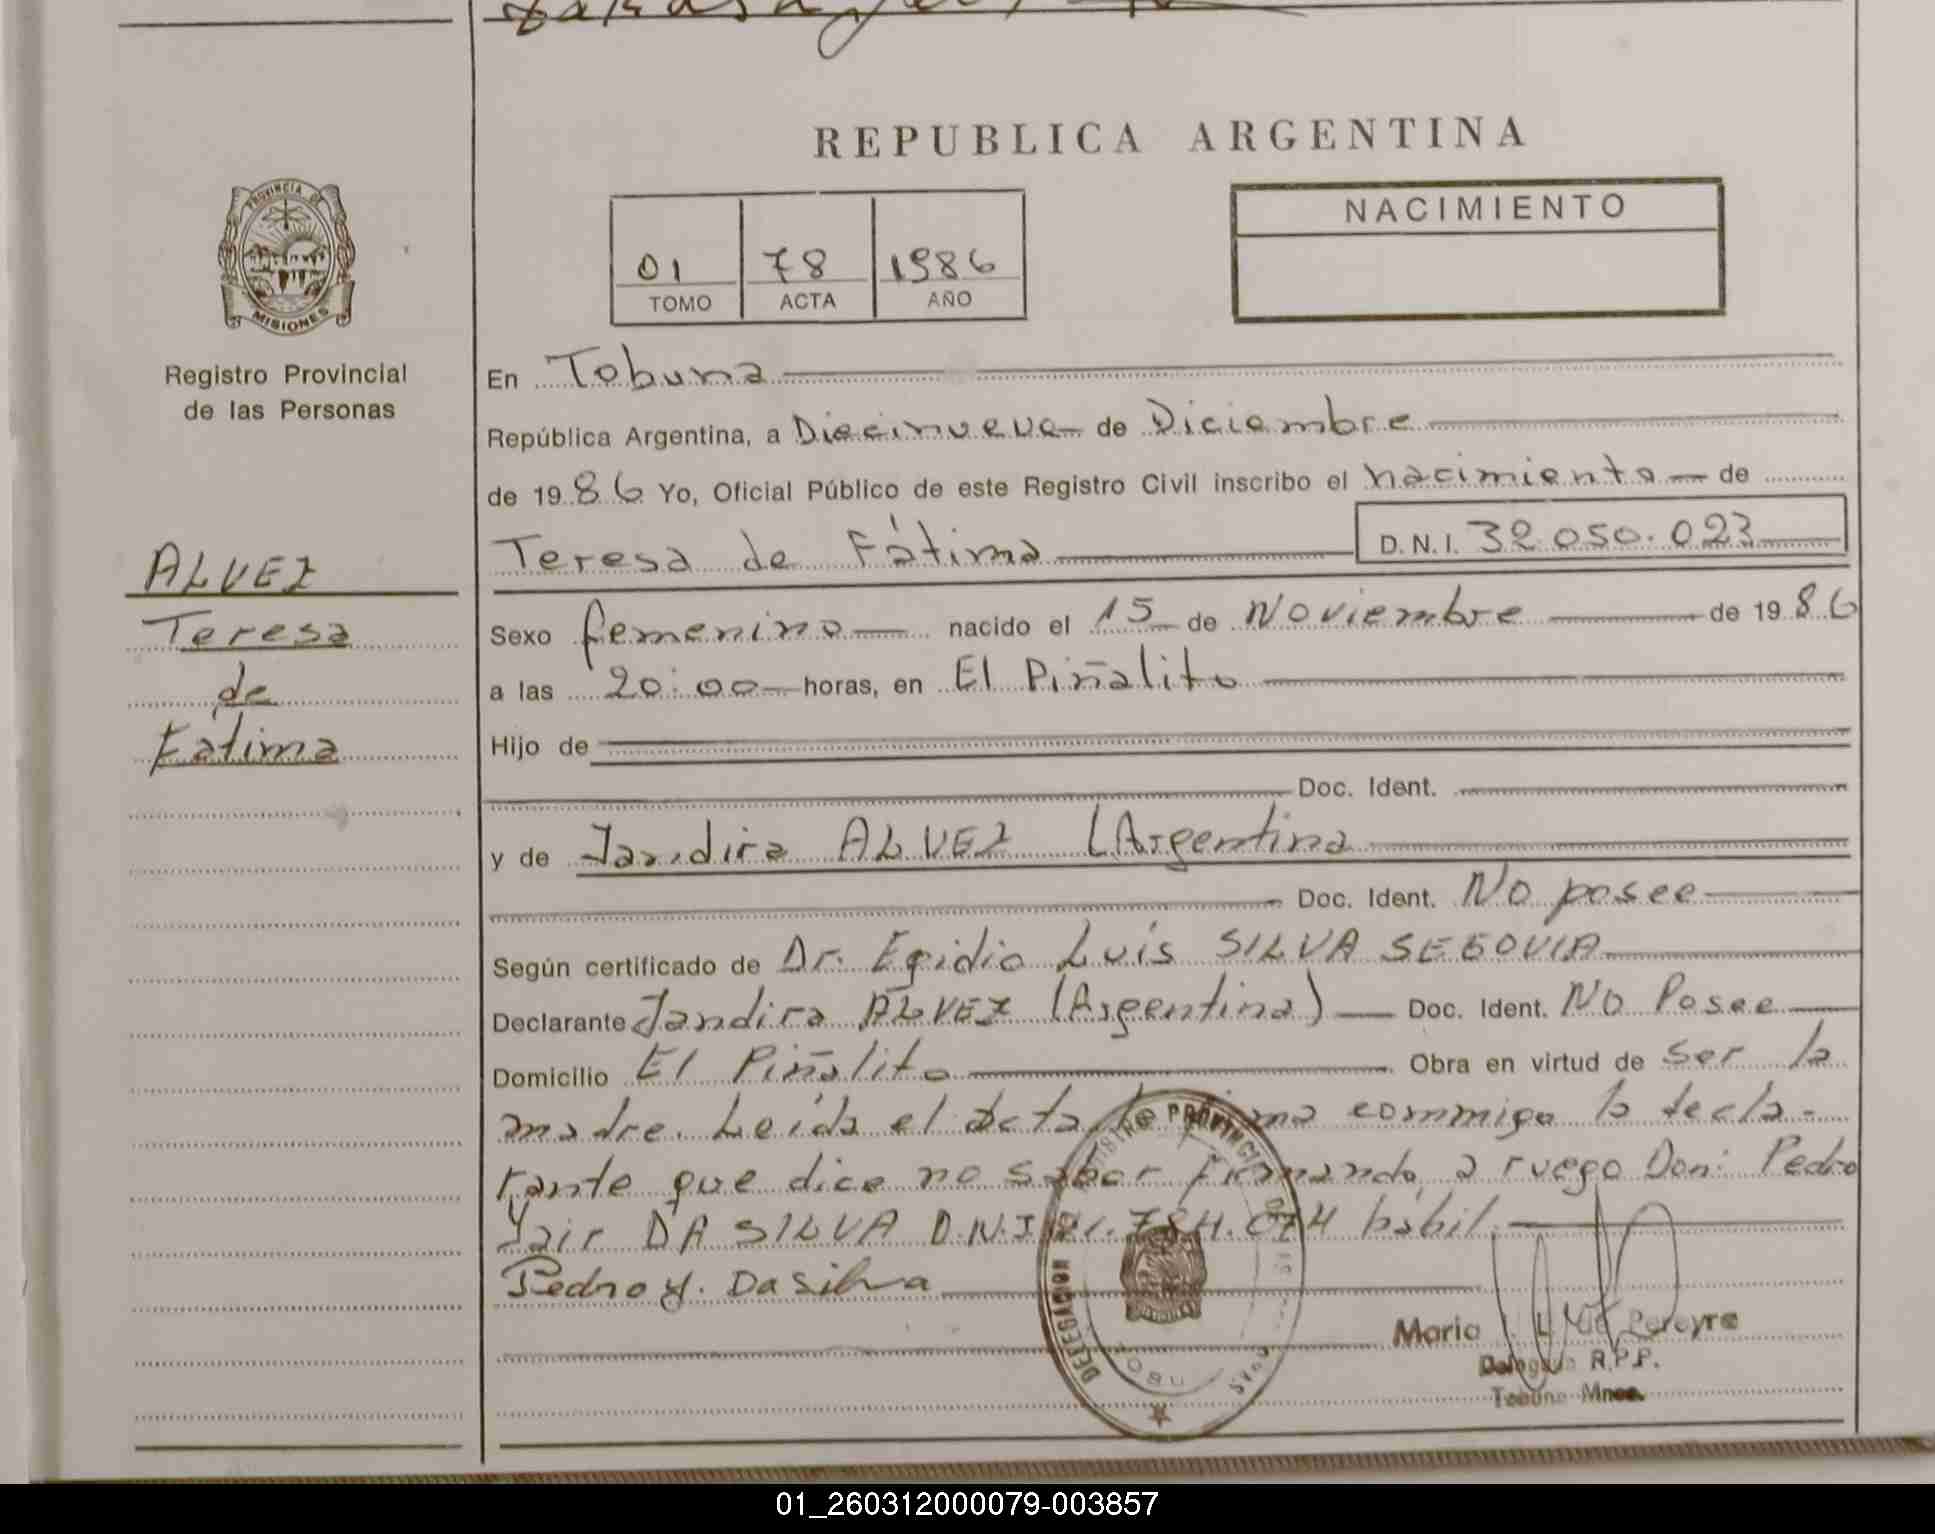 REPUBLICA ARGENTINA
PROVINCIA DE
MISIONES
Registro Provincial
de las Personas
01 78 1986
TOMO ACTA AÑO
NACIMIENTO
ALVEZ
Teresa
de
Fatima
En Tobuna
República Argentina, a Diecinueve de Diciembre
de 1986 Yo, Oficial Público de este Registro Civil inscribo el nacimiento de
Teresa de Fátima D.N.I. 32.050.023
Sexo femenino nacido el 15 de Noviembre de 1986
a las 20:00 horas, en El Piñalito
Hijo de
Doc. Ident.
y de Jandira ALVEZ (Argentina
Doc. Ident. No posee
Según certificado de Dr. Egidio Luis SILVA SEGOVIA
Declarante Jandira ALVEZ (Argentina) Doc. Ident. No Posee
Domicilio El Piñalito Obra en virtud de ser la
madre. Leída el acta la firma conmigo la decla-
rante que dice no saber firmando a ruego Don: Pedro
Jair DA SILVA D.N.I. 784.074 hábil.
Pedro Y. Da Silva
DELEGACION
PROVINCIAL
Maria Pereyra
Delegada R.P.P.
Tobuna Mnes.
01_260312000079-003857